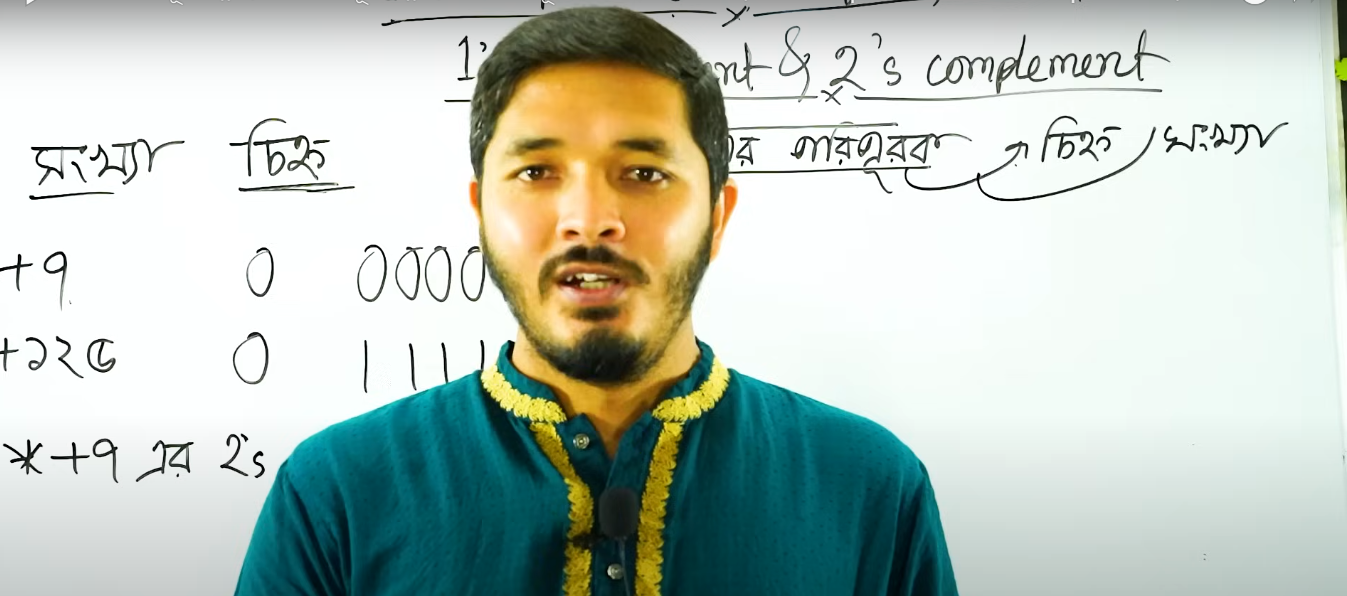 1' nt & 2's complement
সংখ্যা চিহ্ন র পরিপূরক চিহ্ন / সংখ্যা
+৭ 0 0000
+১২৫ 0 1111
* +৭ এর 2's